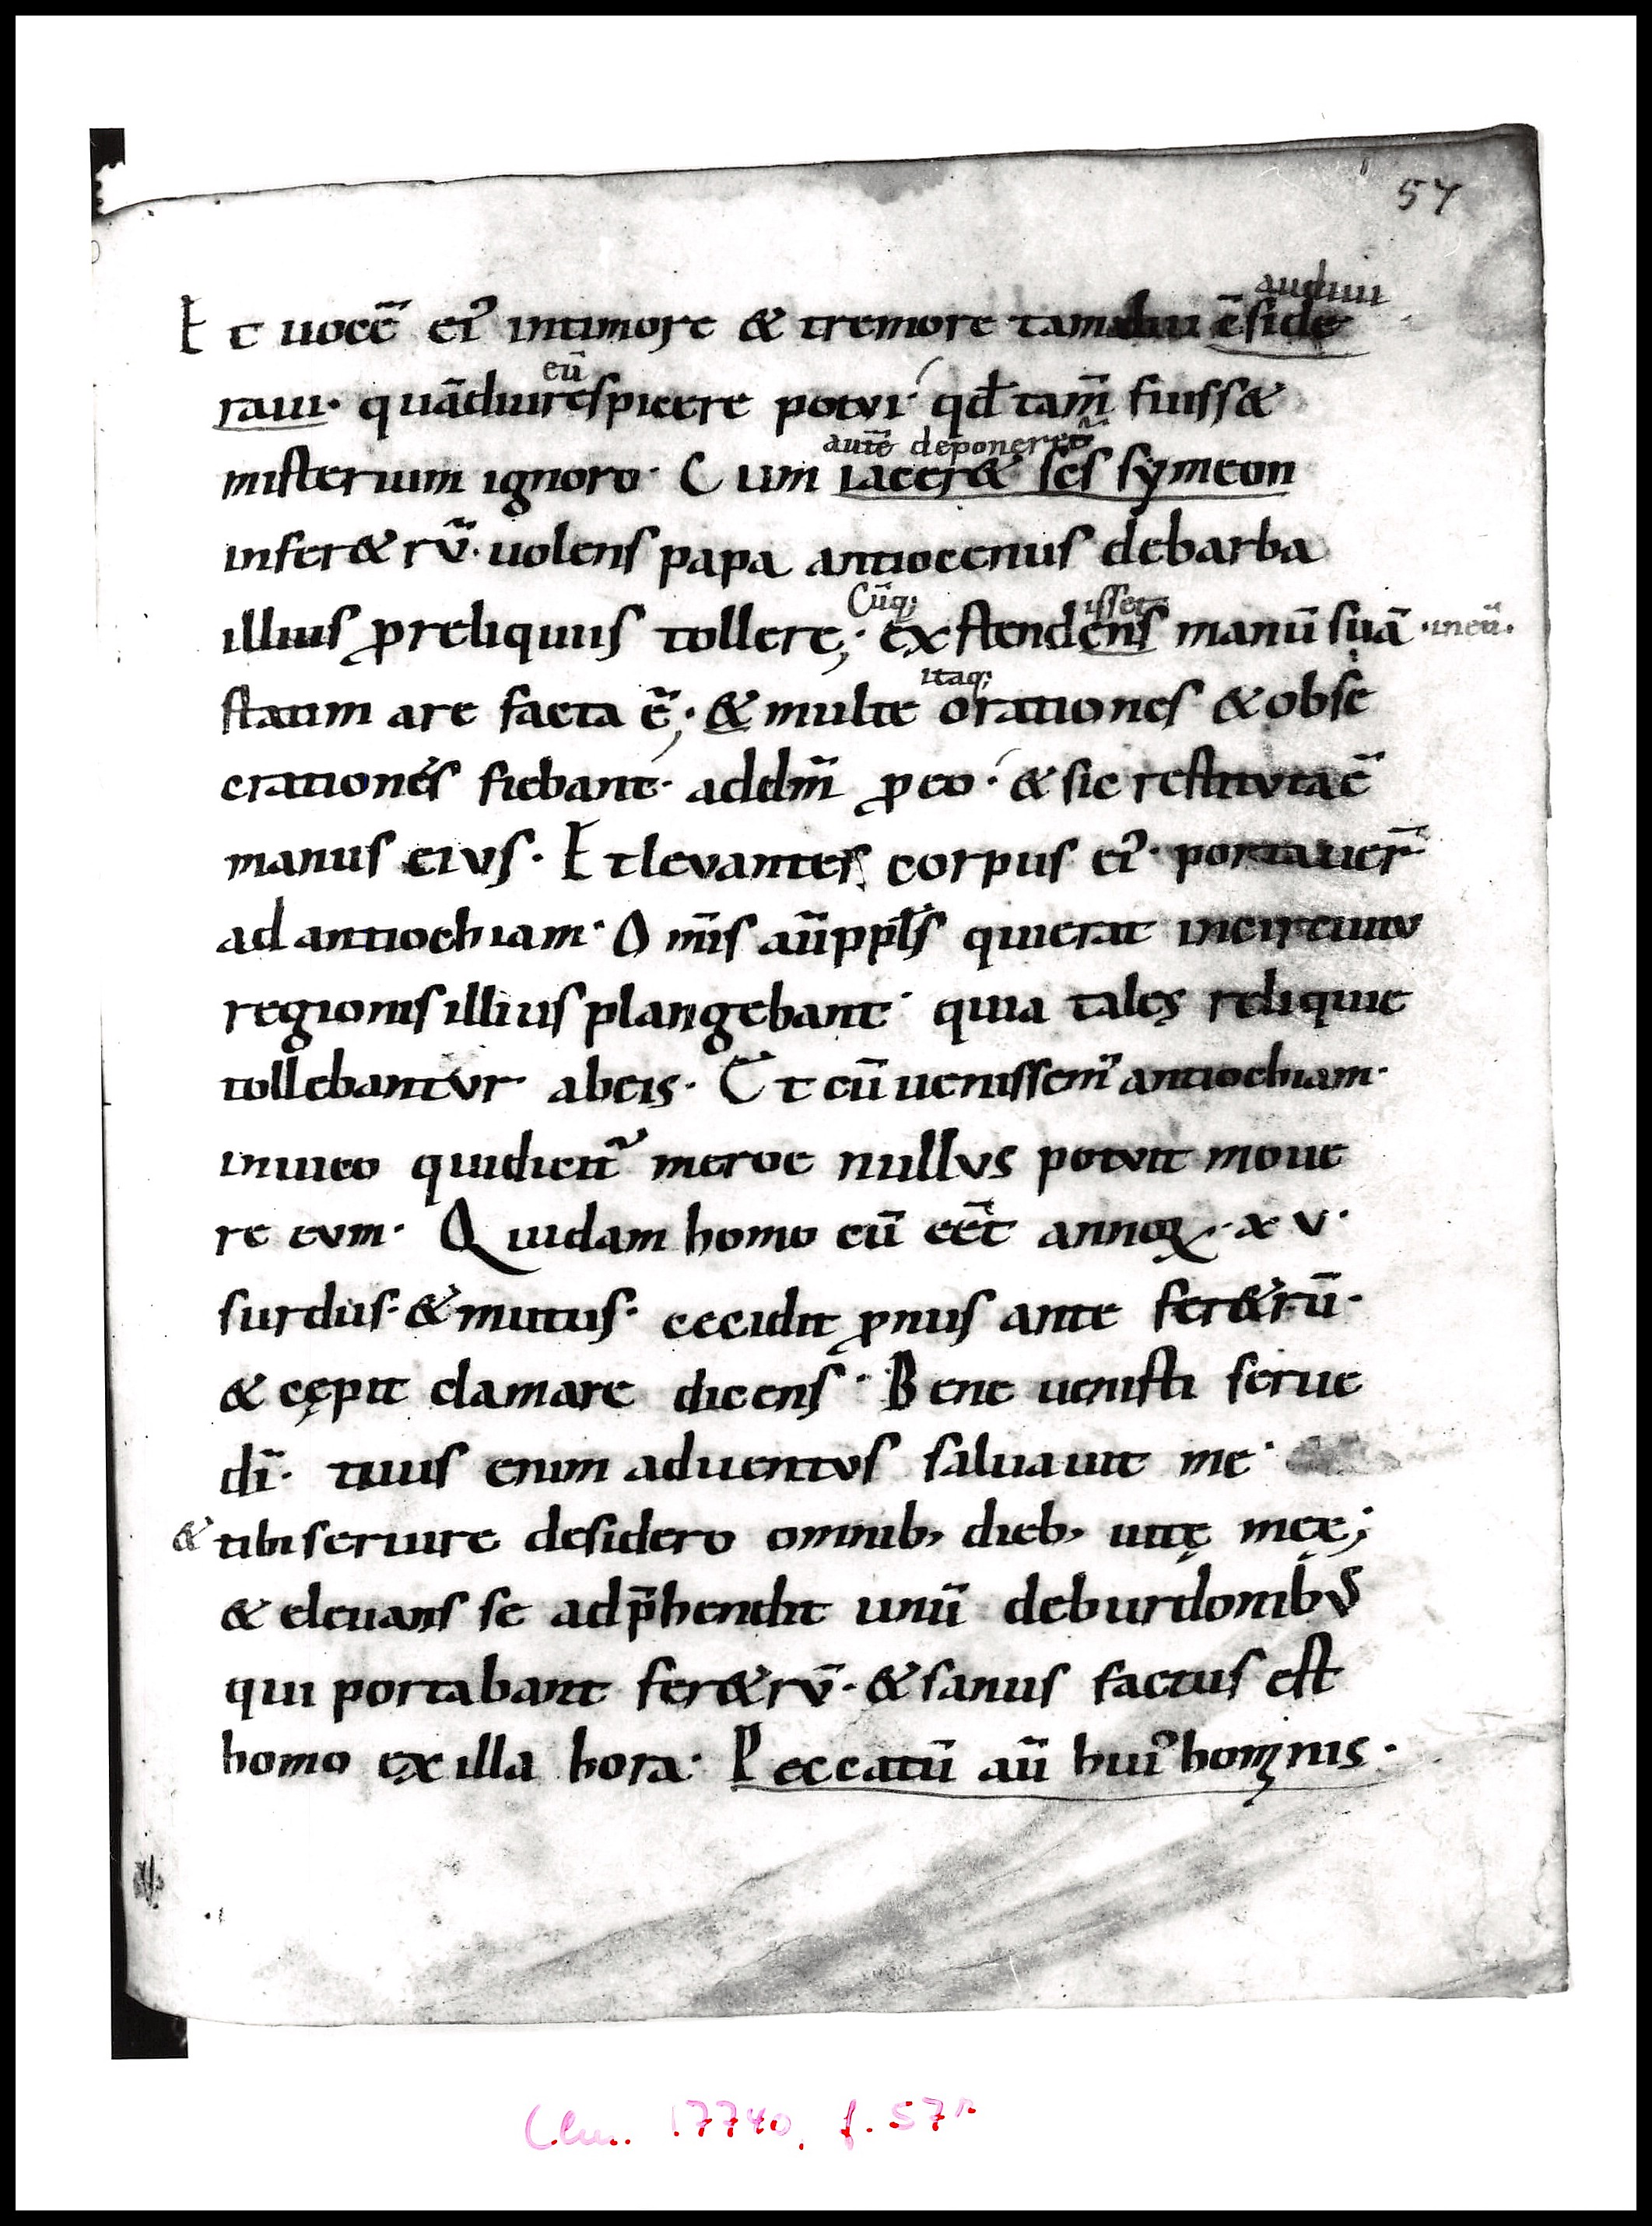 57
audiui
Et uocē ei᾽ intimore & tremore tamdiu ēside
eū
raui· quādiurespicere potvi· qđ tam̄ fuiss&
autē deponeret᷑
misterium ignoro· Cum iacer& scs̄ symeon
infer&rv̄· uolens papa antiocenus debarba
Cūq; isset
illius ꝓreliquiis tollere; extendens manū suā ·ineū·
itaq;
statim are facta ē; & multe orationes & obse
crationes fiebant· addm̄ ꝓ eo· & sic restitvtaē
manus eivs· Et levantes corpus ei᾽· portauer̄
ad antiochiam· Om̄is aū ppl̄s quierat incircuitv
regionis illius plangebant· quia tales reliquie
tollebantvr abeis· Et cū uenissem᾽ antiochiam·
inuico quidicit᷑ meroe nullvs potvit moue
re evm· Quidam homo cū eēt annoꝝ· xv·
surdus· & mutus· cecidit ꝓnus ante fer&rū·
& cępit clamare dicens· Bene uenisti serue
dī· tuus enim aduentvs saluauit me·
& tibi seruire desidero omnib; dieb; uitę meę;
& eleuans se adp̄hendit unū deburdonibvs
qui portabant fer&rv̄· & sanus factus est
homo ex illa hora· Peccatū aū hui᾽ hominis·
Clm. 17740, f. 57r